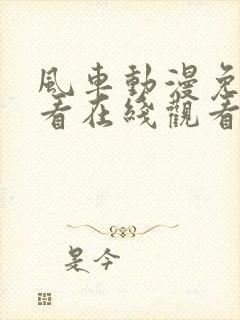 風車動漫免
看在綫觀看
是今